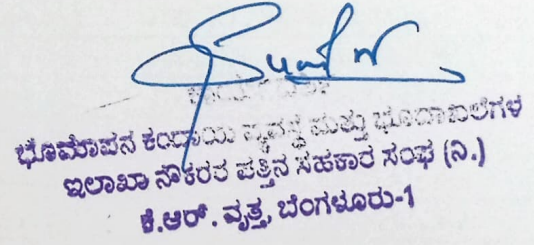 ಕಾರ್ಯದರ್ಶಿ
ಭೂಮಾಪನ ಕಂದಾಯ ವ್ಯವಸ್ಥೆ ಮತ್ತು ಭೂದಾಖಲೆಗಳ
ಇಲಾಖಾ ನೌಕರರ ಪತ್ತಿನ ಸಹಕಾರ ಸಂಘ (ನಿ.)
ಕೆ.ಆರ್. ವೃತ್ತ, ಬೆಂಗಳೂರು-1